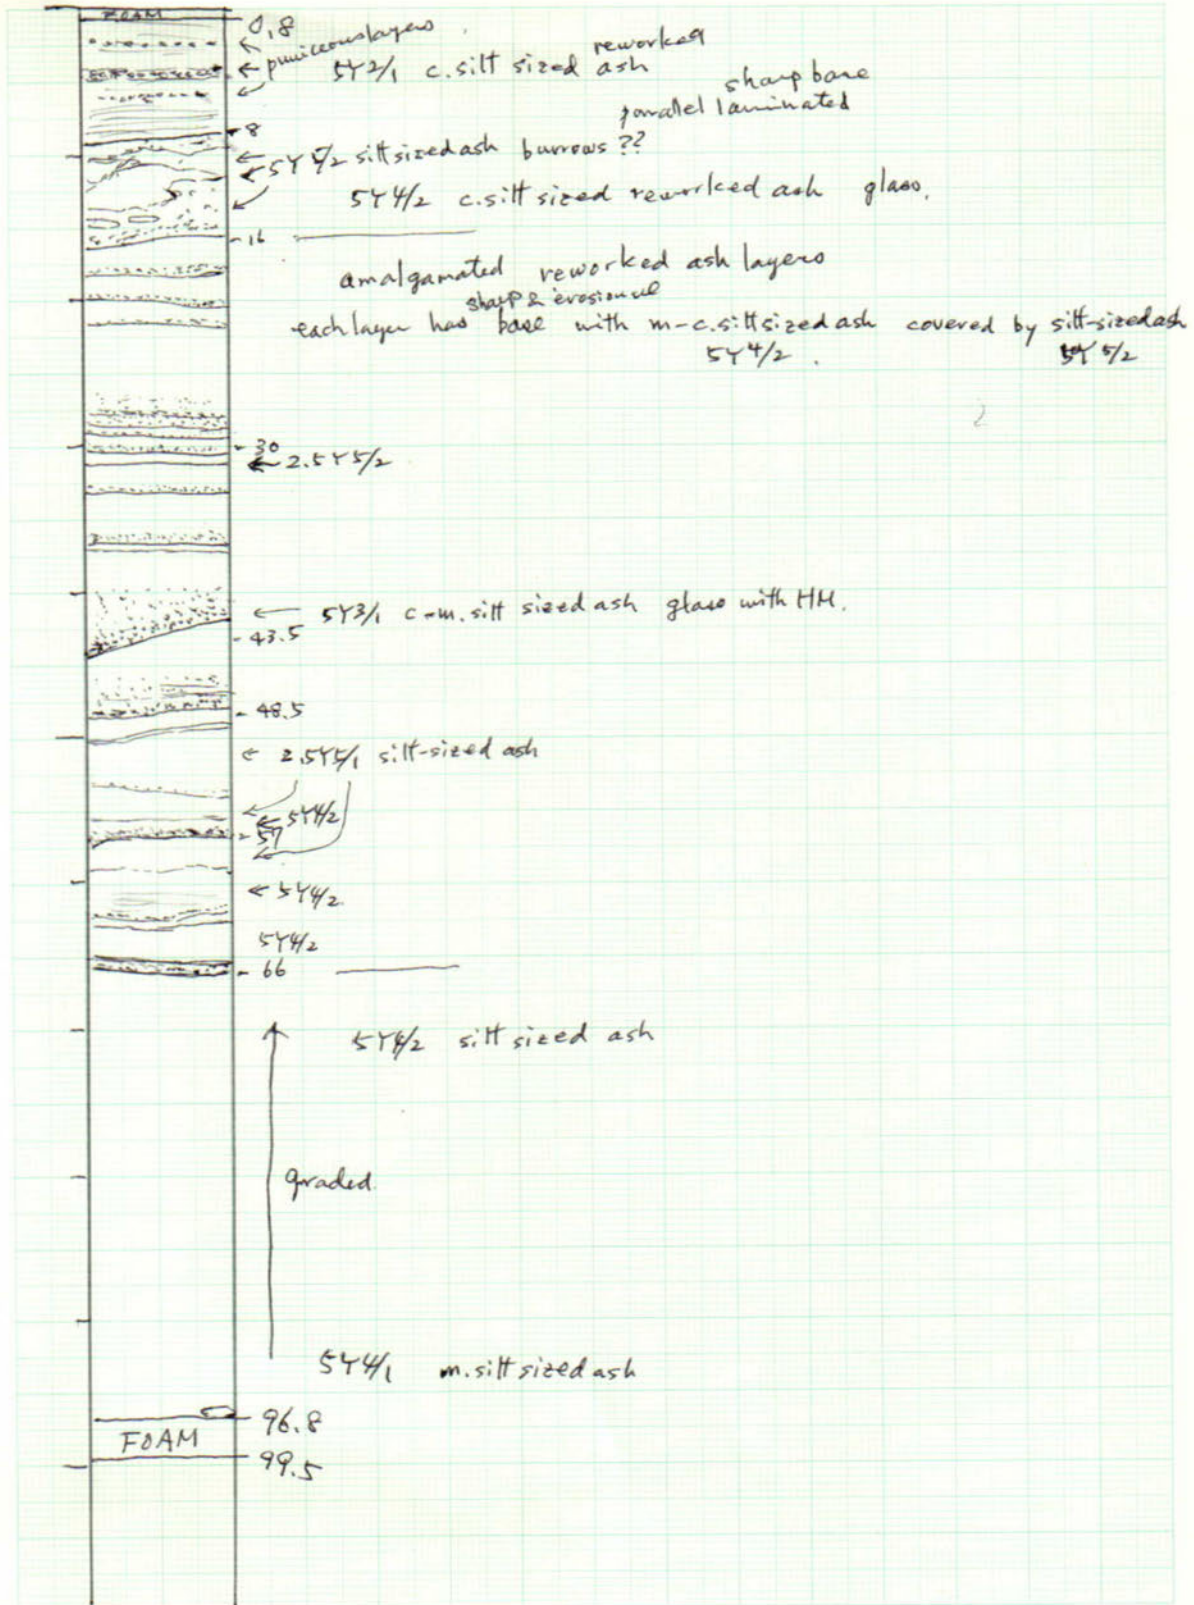 FOAM
0,8
pumiceous layers
reworked
5Y2/1 c.silt sized ash
sharp base
parallel laminated
8
5Y 5/2 silt sized ash burrows ??
5Y 4/2 c.silt sized reworked ash glass.
16
amalgamated reworked ash layers
sharp & erosional
each layer has base with m-c.silt sized ash covered by silt-sized ash
5Y 4/2 . 5Y 5/2
30
2.5Y5/2
5Y3/1 c-m.silt sized ash glass with HM.
43.5
48.5
2.5Y5/1 silt-sized ash
5Y4/2
57
5Y4/2.
5Y4/2
66
5Y4/2 silt sized ash
graded.
5Y4/1 m.silt sized ash
96.8
FOAM
99.5